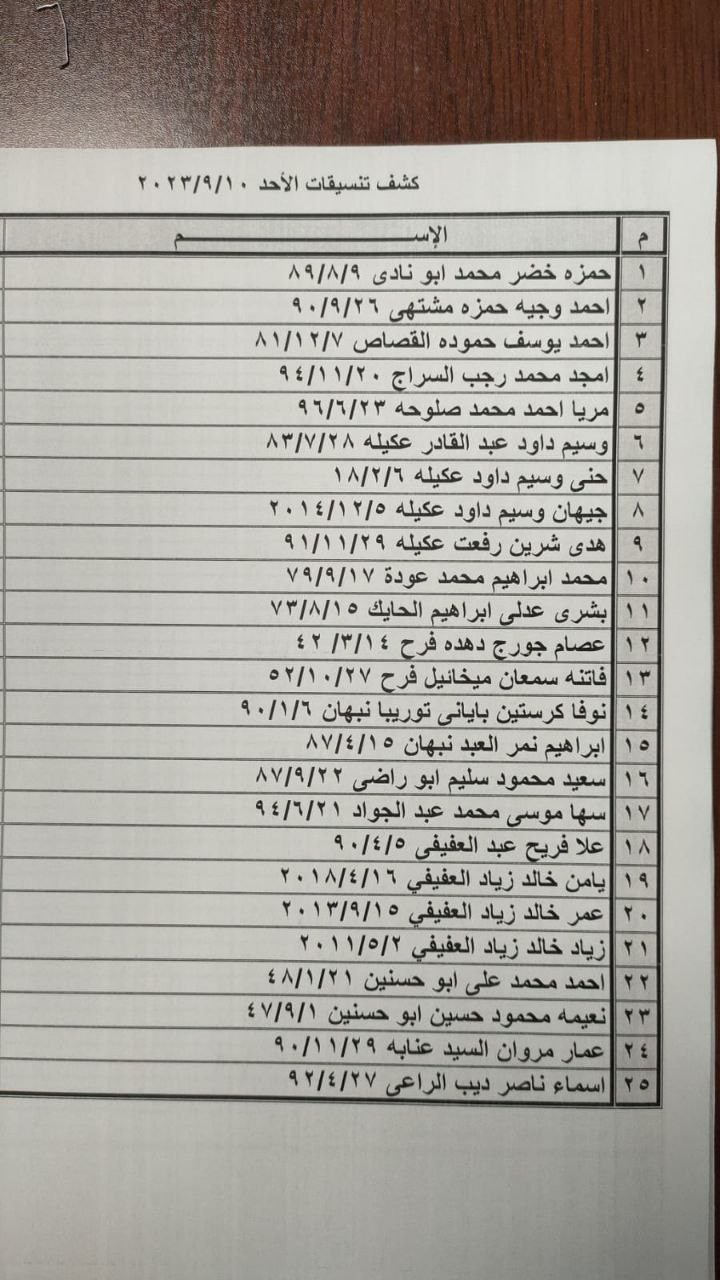 كشف تنسيقات الأحد ٢٠٢٣/٩/١٠
م الإســـــــــم
١ حمزه خضر محمد ابو نادى ٨٩/٨/٩
٢ احمد وجيه حمزه مشتهى ٩٠/٩/٢٦
٣ احمد يوسف حموده القصاص ٨١/١٢/٧
٤ امجد محمد رجب السراج ٩٤/١١/٢٠
٥ مريا احمد محمد صلوحه ٩٦/٦/٢٣
٦ وسيم داود عبد القادر عكيله ٨٣/٧/٢٨
٧ حنى وسيم داود عكيله ١٨/٢/٦
٨ جيهان وسيم داود عكيله ٢٠١٤/١٢/٥
٩ هدى شرين رفعت عكيله ٩١/١١/٢٩
١٠ محمد ابراهيم محمد عودة ٧٩/٩/١٧
١١ بشرى عدلى ابراهيم الحايك ٧٣/٨/١٥
١٢ عصام جورج دهده فرح ٤٢ /٣/١٤
١٣ فاتنه سمعان ميخائيل فرح ٥٢/١٠/٢٧
١٤ نوفا كرستين باياني توريبا نبهان ٩٠/١/٦
١٥ ابراهيم نمر العبد نبهان ٨٧/٤/١٥
١٦ سعيد محمود سليم ابو راضى ٨٧/٩/٢٢
١٧ سها موسى محمد عبد الجواد ٩٤/٦/٢١
١٨ علا فريح عبد العفيفى ٩٠/٤/٥
١٩ يامن خالد زياد العفيفي ٢٠١٨/٤/١٦
٢٠ عمر خالد زياد العفيفي ٢٠١٣/٩/١٥
٢١ زياد خالد زياد العفيفي ٢٠١١/٥/٢
٢٢ احمد محمد على ابو حسنين ٤٨/١/٢١
٢٣ نعيمه محمود حسين ابو حسنين ٤٧/٩/١
٢٤ عمار مروان السيد عنابه ٩٠/١١/٢٩
٢٥ اسماء ناصر ديب الراعى ٩٢/٤/٢٧